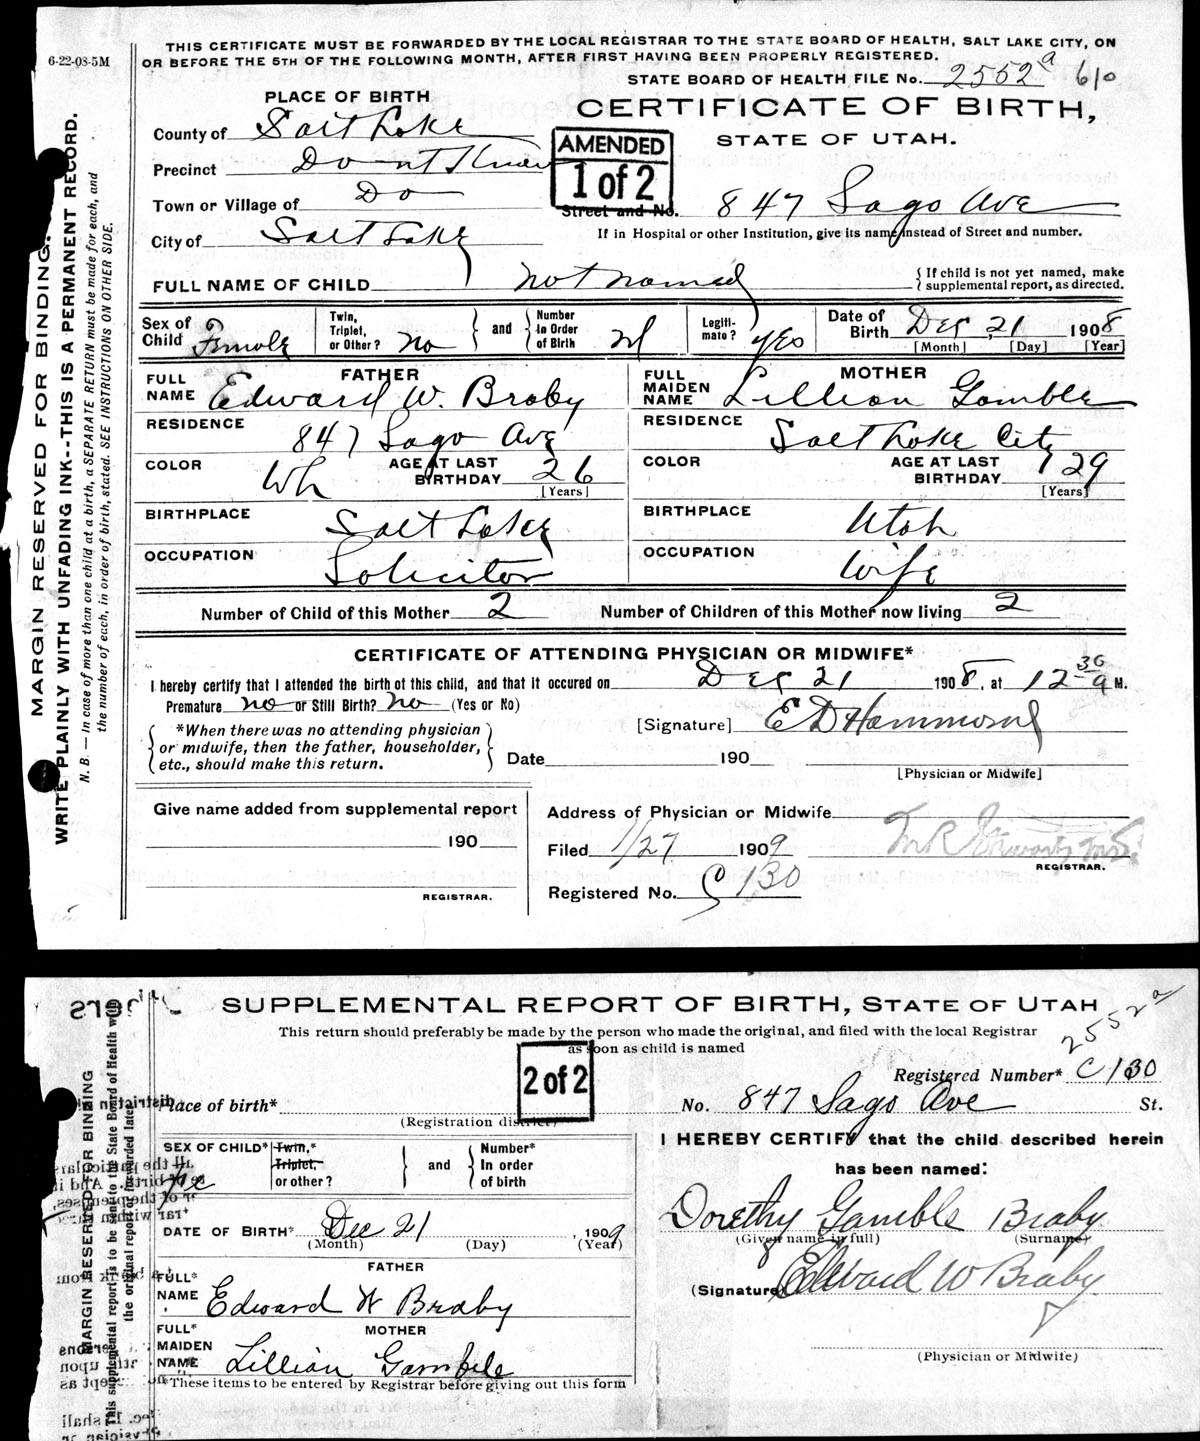 6-22-08-5M
THIS CERTIFICATE MUST BE FORWARDED BY THE LOCAL REGISTRAR TO THE STATE BOARD OF HEALTH, SALT LAKE CITY, ON
OR BEFORE THE 5TH OF THE FOLLOWING MONTH, AFTER FIRST HAVING BEEN PROPERLY REGISTERED.
STATE BOARD OF HEALTH FILE No. 2552 a 610
PLACE OF BIRTH
CERTIFICATE OF BIRTH,
STATE OF UTAH.
County of Salt Lake
AMENDED
1 of 2
Precinct Do-nt Know
Town or Village of Do
Street and No. 847 Sago Ave
City of Salt Lake
If in Hospital or other Institution, give its name instead of Street and number.
FULL NAME OF CHILD not named
{ If child is not yet named, make
supplemental report, as directed.
Sex of Child Female
Twin, Triplet, or Other? No
and
Number In Order of Birth 2d
Legiti-mate? yes
Date of Birth Dec 21 1908
[Month] [Day] [Year]
FATHER
FULL NAME Edward W. Braby
RESIDENCE 847 Sago Ave
COLOR Wh
AGE AT LAST BIRTHDAY 26
[Years]
BIRTHPLACE Salt Lake
OCCUPATION Solicitor
MOTHER
FULL MAIDEN NAME Lillian Gamble
RESIDENCE Salt Lake City
COLOR
AGE AT LAST BIRTHDAY 29
[Years]
BIRTHPLACE Utah
OCCUPATION Wife
Number of Child of this Mother 2
Number of Children of this Mother now living 2
CERTIFICATE OF ATTENDING PHYSICIAN OR MIDWIFE*
I hereby certify that I attended the birth of this child, and that it occured on Dec 21 1908, at 12 30 a M.
Premature no or Still Birth? no (Yes or No)
*When there was no attending physician
or midwife, then the father, householder,
etc., should make this return.
[Signature] E D Hammond
Date 190
[Physician or Midwife]
Give name added from supplemental report
190
REGISTRAR.
Address of Physician or Midwife
Filed 1/27 1909
REGISTRAR.
Registered No. C 130
MARGIN RESERVED FOR BINDING.
WRITE PLAINLY WITH UNFADING INK--THIS IS A PERMANENT RECORD.
N. B. — In case of more than one child at a birth, a SEPARATE RETURN must be made for each, and
the number of each, in order of birth, stated. SEE INSTRUCTIONS ON OTHER SIDE.
SUPPLEMENTAL REPORT OF BIRTH, STATE OF UTAH
This return should preferably be made by the person who made the original, and filed with the local Registrar
as soon as child is named
2552 a
2 of 2
Registered Number* C 130
Place of birth*
(Registration district)
No. 847 Sago Ave St.
SEX OF CHILD* Fe
Twin,* Triplet, or other?
and
Number* In order of birth
I HEREBY CERTIFY that the child described herein
has been named:
Dorethy Gamble Braby
(Given name in full) (Surname)
DATE OF BIRTH* Dec 21, 1909
(Month) (Day) (Year)
(Signature Edward W Braby
FATHER
FULL* NAME Edward W Braby
MOTHER
FULL* MAIDEN NAME Lillian Gamble
(Physician or Midwife)
*These items to be entered by Registrar before giving out this form
MARGIN RESERVED FOR BINDING
This supplemental report is to be sent to the State Board of Health with
the original report or forwarded later